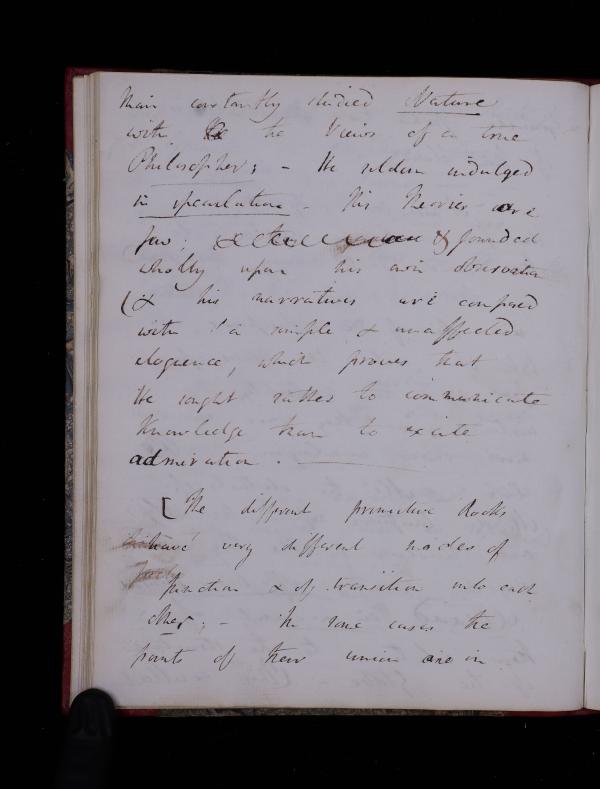 Man constantly studied Nature
with the Views of a true
Philosopher; - He seldom indulged
in speculation - His Theories are
few; & founded
wholly upon his own Observation
(& his narratives are composed
with a simple & unaffected
eloquence, which proves that
He sought rather to communicate
Knowledge than to excite
admiration. -
[The different primitive Rocks
have very different modes of
junction & of transition into each
other; - In some cases the
points of their union are in